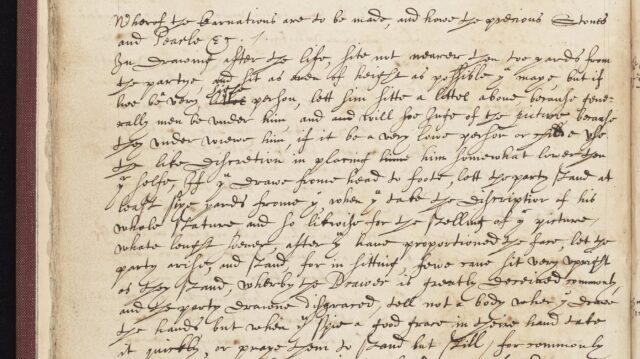 Wherof the Carnations are to be made, and howe the precious Stones
and Pearle &c.
In draweing after the life, site not nearer then too yards from
the partye and sit as even of height as possible yu maye but if
hee be very person, lett him sitte a littel above because gene-
rally men be under him and and will soe Juge of the picture, because
they under viewe him, if it be a very lowe person or use
the like discretion in placing him somewhat lower then
yr selfe. If yu drawe frome head to foote, lett the party stand at
least syxe yards frome yu when yu take the discription of his
whole stature, and so likwise for the stelling of yr picture,
whate lenght soever, after yu have proportioned the face, let the
party arise, and stand, for in sitting, fewe cane sit very upright
as they stand, wherby the Drawer is greatly deceived commonly,
and the party drawne disgraced, tell not a body when yu drawe
the hands but when yu spie a good grace in theire hand take
it quickly, or praye them to stand but still, for commonly